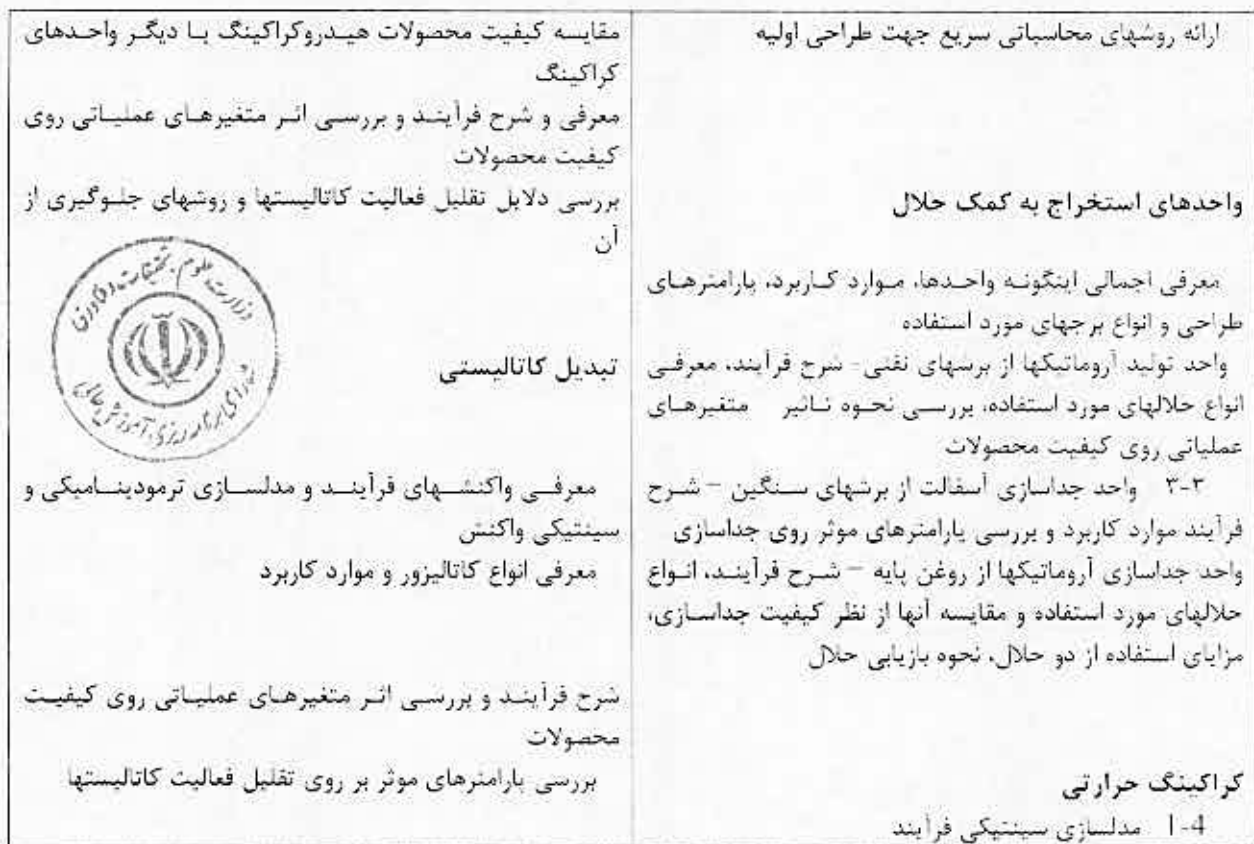 ارائه روشهای محاسباتی سریع جهت طراحی اولیه
واحدهای استخراج به کمک حلال
معرفی اجمالی اینگونه واحدها، موارد کاربرد، پارامترهای
طراحی و انواع برجهای مورد استفاده
واحد تولید آروماتیکها از برشهای نفتی- شرح فرآیند، معرفی
انواع حلالهای مورد استفاده، بررسی نحوه تاثیر متغیرهای
عملیاتی روی کیفیت محصولات
۳-۳ واحد جداسازی آسفالت از برشهای سنگین – شرح
فرآیند موارد کاربرد و بررسی پارامترهای موثر روی جداسازی
واحد جداسازی آروماتیکها از روغن پایه – شرح فرآیند، انواع
حلالهای مورد استفاده و مقایسه آنها از نظر کیفیت جداسازی،
مزایای استفاده از دو حلال، نحوه بازیابی حلال
کراکینگ حرارتی
1-4 مدلسازی سینتیکی فرآیند
مقایسه کیفیت محصولات هیدروکراکینگ با دیگر واحدهای
کراکینگ
معرفی و شرح فرآیند و بررسی اثر متغیرهای عملیاتی روی
کیفیت محصولات
بررسی دلایل تقلیل فعالیت کاتالیستها و روشهای جلوگیری از
آن
وزارت علوم، تحقیقات و فناوری
شورای برنامه ریزی آموزش عالی
تبدیل کاتالیستی
معرفی واکنشهای فرآیند و مدلسازی ترمودینامیکی و
سینتیکی واکنش
معرفی انواع کاتالیزور و موارد کاربرد
شرح فرآیند و بررسی اثر متغیرهای عملیاتی روی کیفیت
محصولات
بررسی پارامترهای موثر بر روی تقلیل فعالیت کاتالیستها